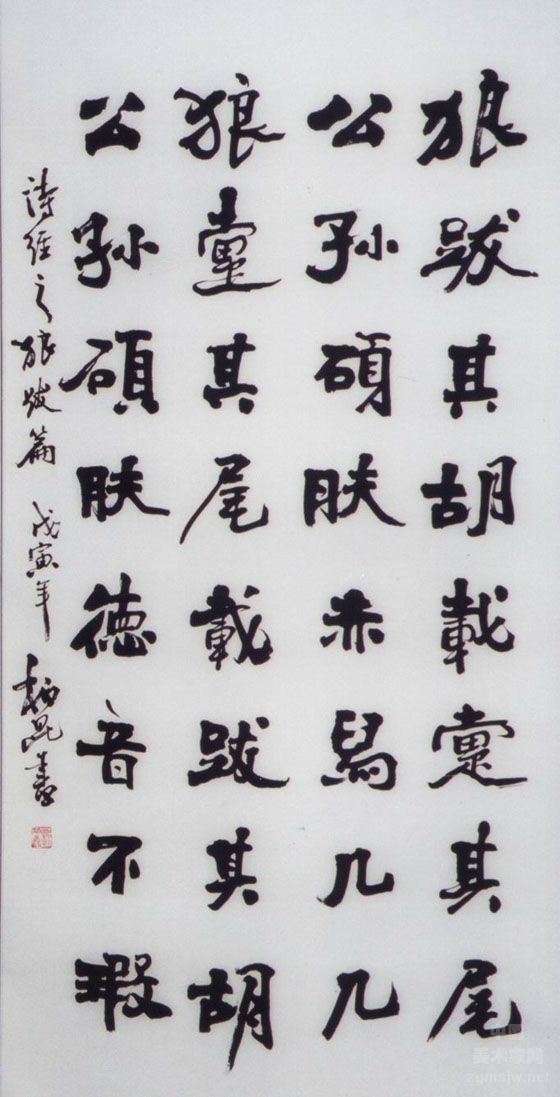 狼跋其胡載疐其尾
公孫碩膚赤舄几几
狼疐其尾載跋其胡
公孫碩膚德音不瑕
詩經之狼跋篇 戊寅年 書
美术家网
zgmsjw.net